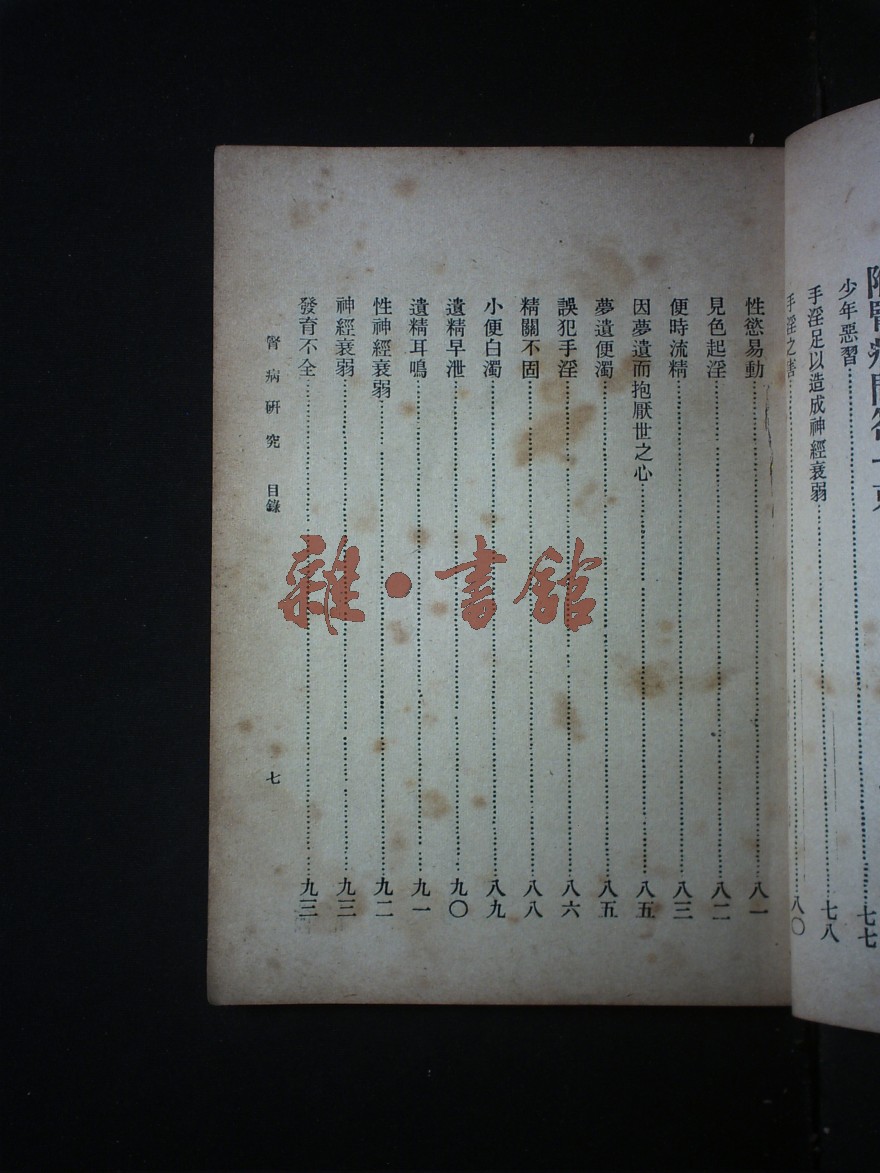 少年惡習……七七
手淫足以造成神經衰弱……七八
手淫之害……八〇
性慾易動……八一
見色起淫……八二
便時流精……八三
因夢遺而抱厭世之心……八五
夢遺便濁……八五
誤犯手淫……八六
精關不固……八八
小便白濁……八九
遺精早泄……九〇
遺精耳鳴……九一
性神經衰弱……九二
神經衰弱……九三
發育不全……九三
腎病研究 目錄
七
雜·書館